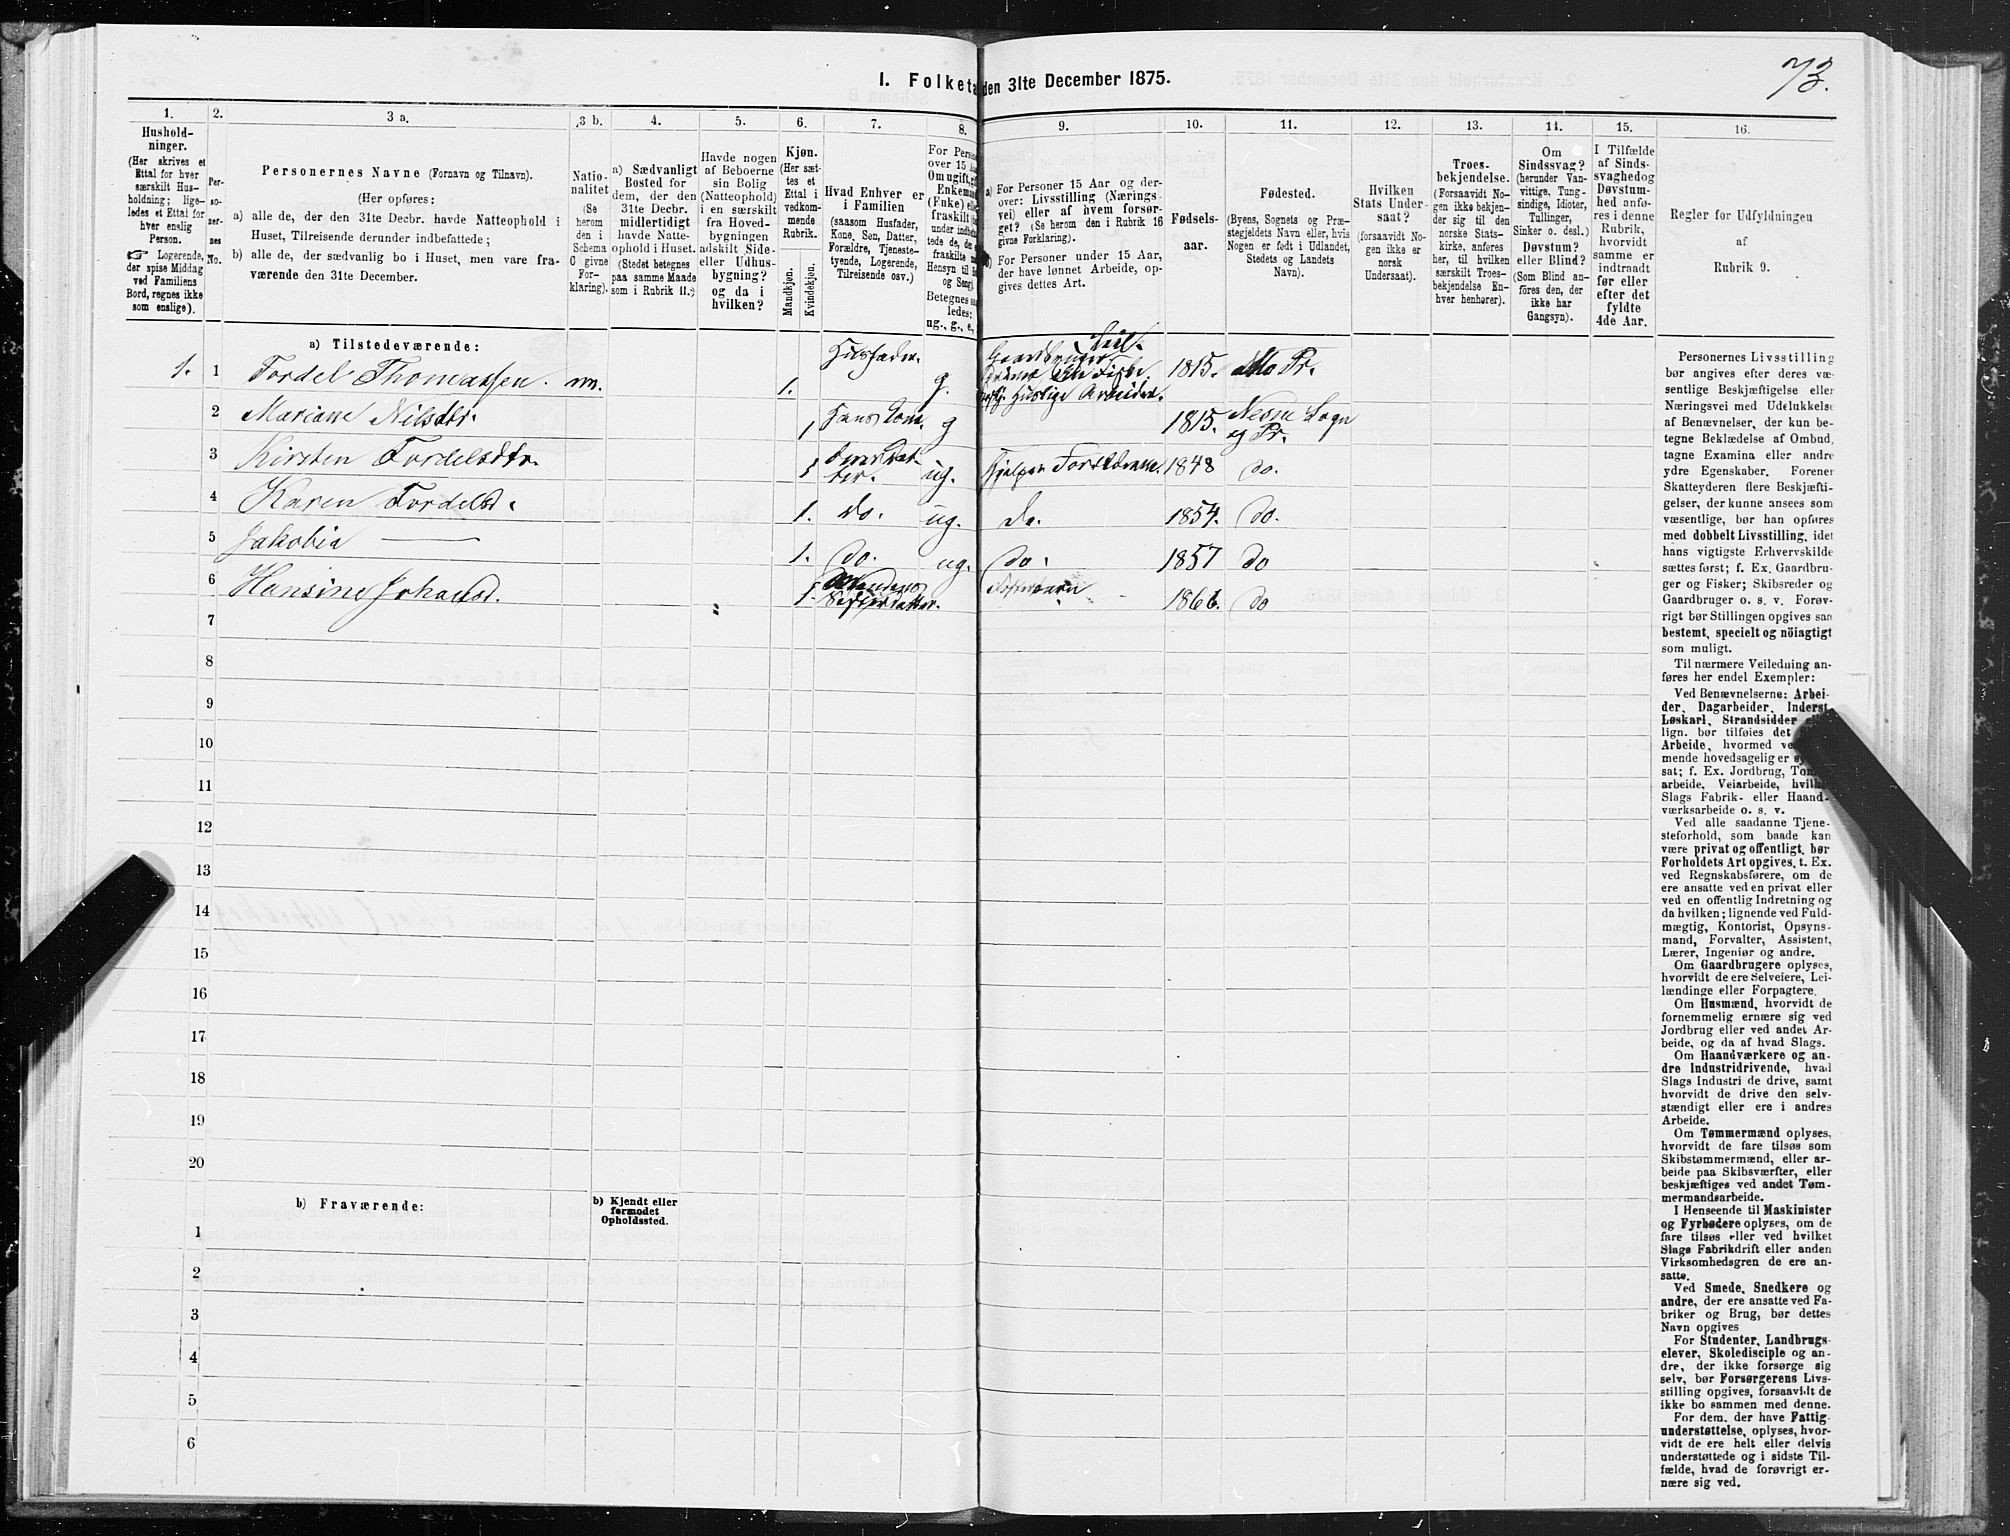 73.
1. Folketæ den 31te December 1875.
1. 2. 3 a. 3 b. 4. 5. 6. 7. 8. 9. 10. 11. 12. 13. 14. 15. 16.
Hushold-
ninger.
(Her skrives et
Ettal for hver
særskilt Hus-
holdning; lige-
ledes et Ettal for
hver enslig
Person.
☞ Logerende,
der spise Middag
ved Familiens
Bord, regnes ikke
som enslige).
Per-
so-
ner-
nes
No.
Personernes Navne (Fornavn og Tilnavn).
(Her opføres:
a) alle de, der den 31te Decbr. havde Natteophold i
Huset, Tilreisende derunder indbefattede;
b) alle de, der sædvanlig bo i Huset, men vare fra-
værende den 31te December.
Natio-
nalitet
(Se
herom
den i
Schema
C givne
For-
klaring).
a) Sædvanligt
Bosted for
dem, der den
31te Decbr.
midlertidigt
havde Natte-
ophold i Huset.
(Stedet betegnes
paa samme Maade
som i Rubrik 11.)
Havde nogen
af Beboerne
sin Bolig
(Natteophold)
i en særskilt
fra Hoved-
bygningen
adskilt Side-
eller Udhus-
bygning?
og da i
hvilken?
Kjøn.
(Her sæt-
tes et
Ettal i
vedkom-
mende
Rubrik.
Mandkjøn.
Kvindekjøn.
Hvad Enhver er
i Familien
(saasom Husfader,
Kone, Søn, Datter,
Forældre, Tjeneste-
tyende, Logerende,
Tilreisende osv.)
For Person
over 15 A
Om ugift, g
Enkem
(Enke) elle
fraskilt
under indb
tede de, de
fraskilte
Hensyn til
og Seng).
Betegnes s
ledes:
ug., g., e.,
a) For Personer 15 Aar og der-
over: Livsstilling (Nærings-
vei) eller af hvem forsør-
get? (Se herom den i Rubrik 16
givne Forklaring).
b) For Personer under 15 Aar,
der have lønnet Arbeide, op-
gives dettes Art.
Fødsels-
aar.
Fødested.
(Byens, Sognets og Præ-
stegjeldets Navn eller, hvis
Nogen er født i Udlandet,
Stedets og Landets
Navn).
Hvilken
Stats Under-
saat?
(forsaavidt No-
gen ikke er
norsk
Undersaat).
Troes-
bekjendelse.
(Forsaavidt No-
gen ikke bekjen-
der sig til den
norske Stats-
kirke, anføres
her, til hvilken
særskilt Troes-
bekjendelse En-
hver henhører).
Om
Sindssvag?
(herunder Van-
vittige, Tung-
sindige, Idioter,
Tullinger,
Sinker o. desl.)
Døvstum?
eller Blind?
(Som Blind an-
føres den, der
ikke har
Gangsyn).
I Tilfælde
af Sinds-
svaghed og
Døvstum-
hed anfø-
res i denne
Rubrik,
hvorvidt
samme er
indtraadt
før eller
efter det
fyldte
4de Aar.
Regler for Udfyldningen
af
Rubrik 9.
a) Tilstedeværende:
1. 1 Tordel Thomassen. nn. 1. Husfader. g. Gaardbruger Selv. 1815. Pr.
Huslige Arbeider.
2 Mariane Nilsdtr. 1 Hans Kone. g 1815. Nesne Sogn
og Pr.
3 Kirsten Tordelsdtr. 1 Deres Dat-
ter. ug. Hjelper Forældrene. 1848 do.
4 Karen Tordelsd. 1. do. ug. do. 1854. do.
5 Jakobia —— 1. do. ug. do. 1857 do
6 Hansine Johansd. 1. 1866. do
7
8
9
10
11
12
13
14
15
16
17
18
19
20
b) Fraværende:
b) Kjendt eller
formodet
Opholdssted.
1
2
3
4
5
6
Personernes Livsstilling
bør angives efter deres væ-
sentlige Beskjæftigelse eller
Næringsvei med Udelukkelse
af Benævnelser, der kun be-
tegne Beklædelse af Ombud,
tagne Examina eller andre
ydre Egenskaber. Forener
Skatteyderen flere Beskjæfti-
gelser, der kunne ansees som
væsentlige, bør han opføres
med dobbelt Livsstilling, idet
hans vigtigste Erhvervskilde
sættes først; f. Ex. Gaardbru-
ger og Fisker; Skibsreder og
Gaardbruger o. s. v. Forøv-
rigt bør Stillingen opgives saa
bestemt, specielt og nöiagtigt
som muligt.
Til nærmere Veiledning an-
føres her endel Exempler:
Ved Benævnelserne: Arbei-
der, Dagarbeider, Inderst,
Løskarl, Strandsidder
lign. bør tilføies det
Arbeide, hvormed ve
mende hovedsagelig er
sat; f. Ex. Jordbrug, Tom
arbeide, Veiarbeide, hvil
Slags Fabrik- eller Haand-
værksarbeide o. s. v.
Ved alle saadanne Tjene-
steforhold, som baade kan
være privat og offentligt, bør
Forholdets Art opgives, t. Ex.
ved Regnskabsførere, om de
ere ansatte ved en privat eller
ved en offentlig Indretning og
da hvilken; lignende ved Fuld-
mægtig, Kontorist, Opsyns-
mand, Forvalter, Assistent,
Lærer, Ingeniør og andre.
Om Gaardbrugere oplyses,
hvorvidt de ere Selveiere, Lei-
lændinge eller Forpagtere.
Om Husmænd, hvorvidt de
fornemmelig ernære sig ved
Jordbrug eller ved andet Ar-
beide, og da af hvad Slags.
Om Haandværkere og an-
dre Industridrivende, hvad
Slags Industri de drive, samt
hvorvidt de drive den selv-
stændigt eller ere i andres
Arbeide.
Om Tømmermænd oplyses,
hvorvidt de fare tilsøs som
Skibstømmermænd, eller ar-
beide paa Skibsværfter, eller
beskjæftiges ved andet Tøm-
mermandsarbeide.
I Henseende til Maskinister
og Fyrbødere oplyses, om de
fare tilsøs eller ved hvilket
Slags Fabrikdrift eller anden
Virksomhedsgren de ere an-
satte.
Ved Smede, Snedkere og
andre, der ere ansatte ved Fa-
briker og Brug, bør dettes
Navn opgives
For Studenter, Landbrugs-
elever, Skoledisciple og an-
dre, der ikke forsørge sig
selv, bør Forsørgerens Livs-
stilling opgives, forsaavidt de
ikke bo sammen med denne.
For dem, der have Fattig-
understøttelse, oplyses, hvor-
vidt de ere helt eller delvis
understøttede og i sidste Til-
fælde, hvad de forøvrigt er-
nære sig ved.